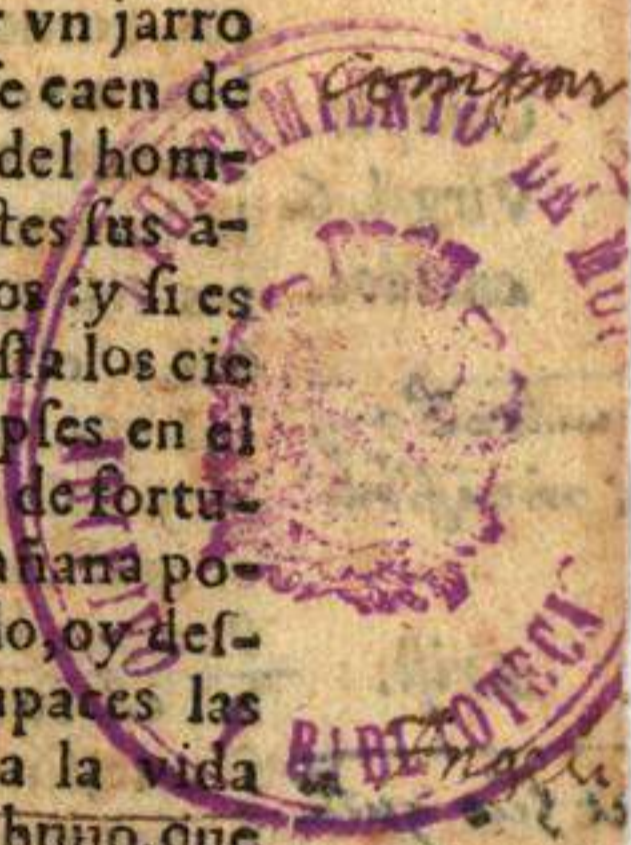 vn jarro
ſe caen de
del hom-
tes ſus a-
os : y ſi es
ſta los cie
pſes en el
de fortu-
añana po-
lo, oy deſ-
upaces las
a la vida
que
DE
BIBLIOTECA
Angeli